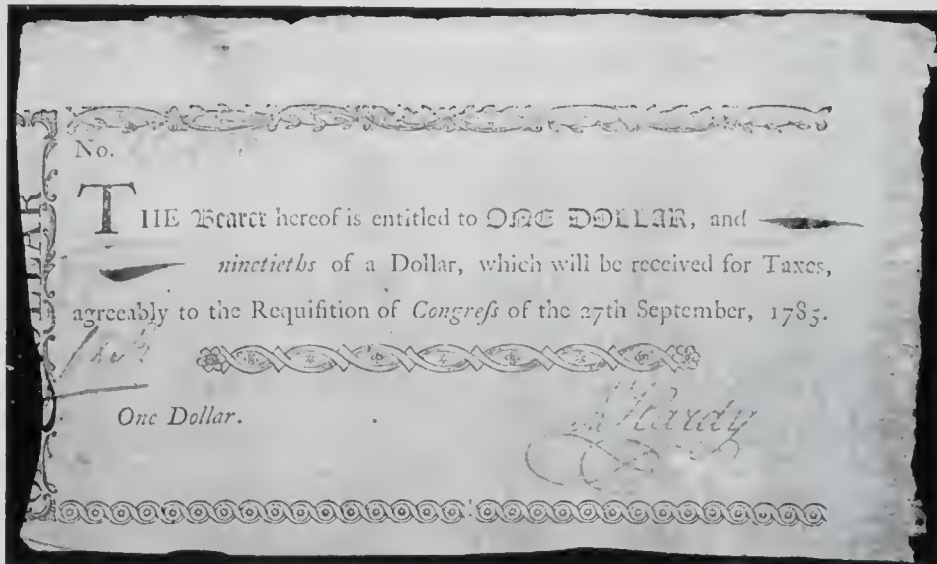 No.
THE Bearer hereof is entitled to ONE DOLLAR, and
ninetieths of a Dollar, which will be received for Taxes,
agreeably to the Requiſition of Congreſs of the 27th September, 1785.
One Dollar.
Hardy